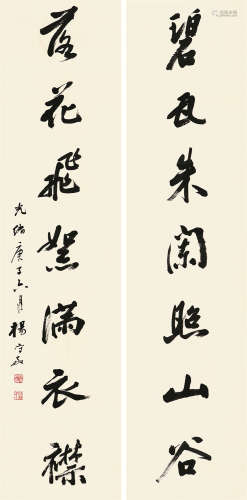 碧瓦朱阑照山谷
落花飛絮滿衣襟
光緒庚子六月
楊守敬